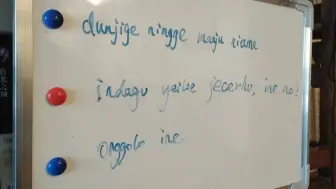 dunjige ningge maju niame
indagu yeike jecerku, ine no!
onggolo ine